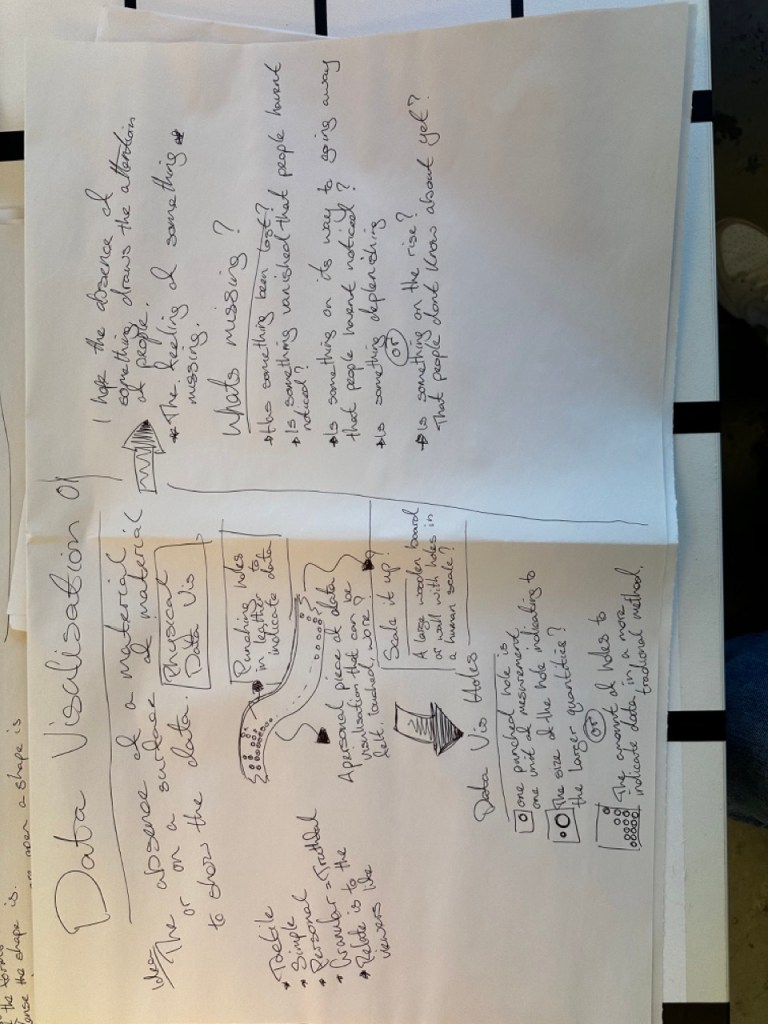 Data Visalisation 01
Idea
The absense of a material
or on a surface of material
to show the data.
Physical
Data Vis
* Tactile
* Simple
* Personal
* Granular = Truthful
* Relate is to the
viewers like
Punching holes
in leather to
indicate data
A personal piece of data
visulisation that can be
felt, touched, worn?
Scale it up?
A large wooden board
or wall with holes in
a human scale?
Data Vis Holes
one punched hole is
one unit of mesurement
The size of the hole indicating to
the larger quantitice?
or
The amount of holes to
indicate data in a more
tradional method.
I hope the absence of
something draws the attention
of people.
* The feeling of something
missing.
Whats missing?
Has something been lost?
Is something vanished that people havent
noticed?
Is something on its way to going away
that people havent noticed?
Is something deplenishing
or
Is something on the rise?
That people dont know about yet?
the shape is.
a shape is